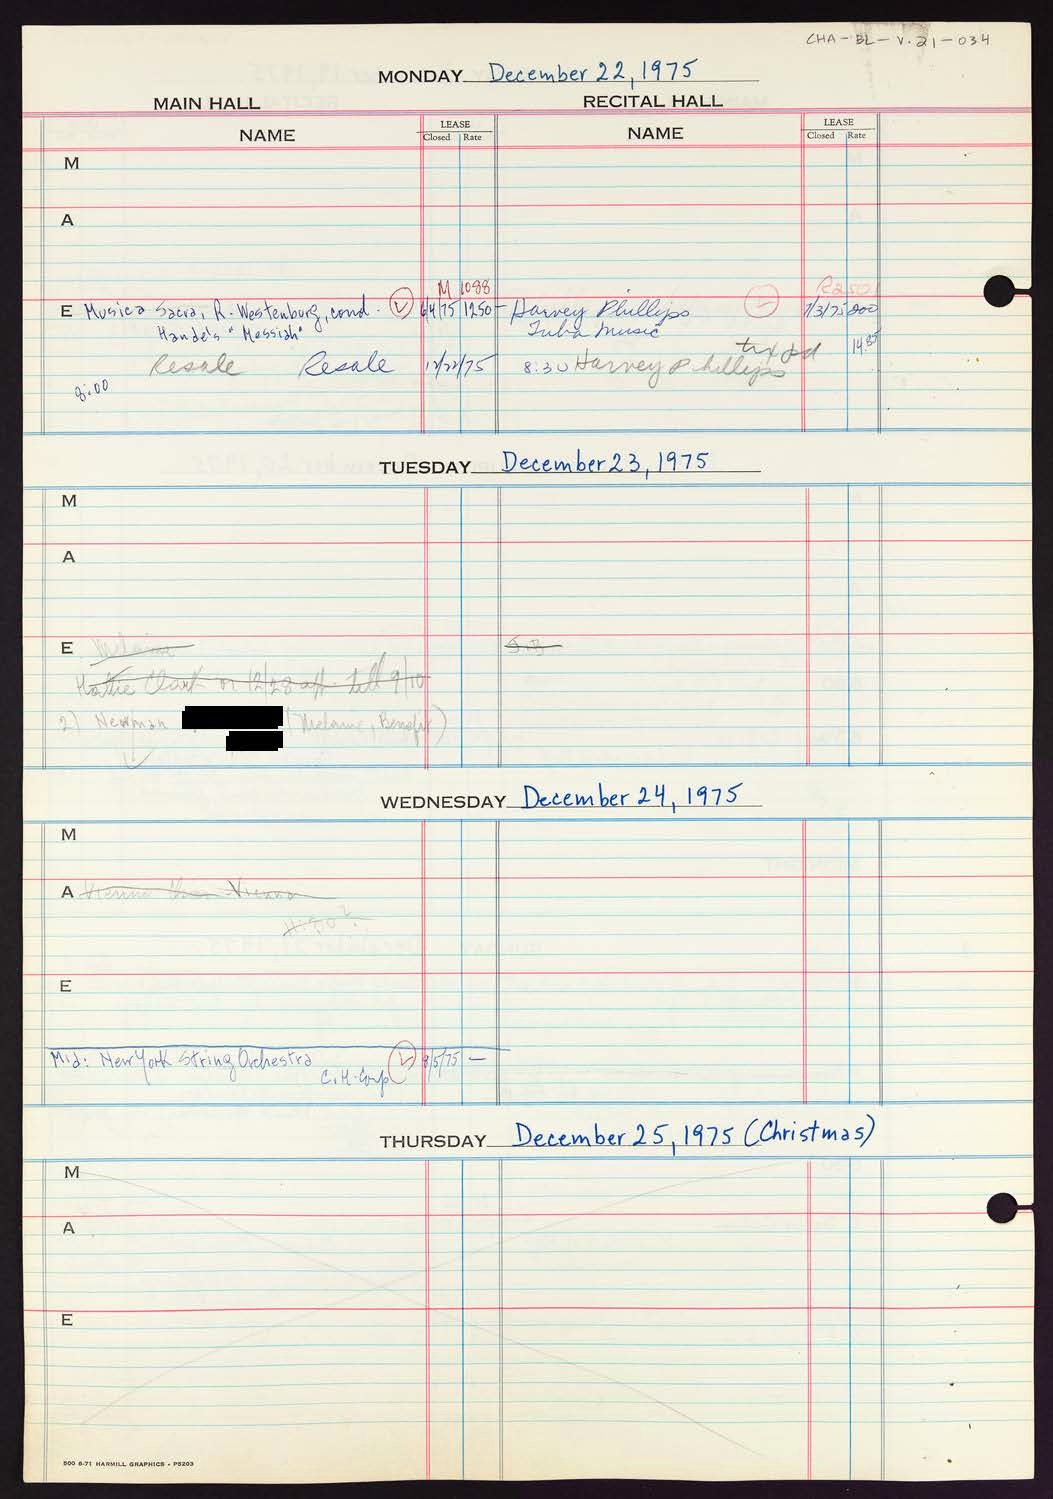 CHA-BL-V.21-034
MONDAY December 22, 1975
MAIN HALL RECITAL HALL
NAME LEASE Closed Rate NAME LEASE Closed Rate
M
A
M 1088
E Musica Sacra, R. Westenburg, cond. 6/4/75 1250- Harvey Phillips 7/3/75 200
Handel's "Messiah" Tuba Music
tix pd 14.85
Resale Resale 12/22/75 8:30 Harvey Phillips
8:00
TUESDAY December 23, 1975
M
A
E Melanie S.B.
Hattie Clark on 12/28 aft till 9/10
2) Newman (Melanie, Benefit)
WEDNESDAY December 24, 1975
M
A Vienna Vienna
E
Mid: New York String Orchestra 8/5/75 —
C.H. Corp
THURSDAY December 25, 1975 (Christmas)
M
A
E
500 6-71 HARMILL GRAPHICS - P5203